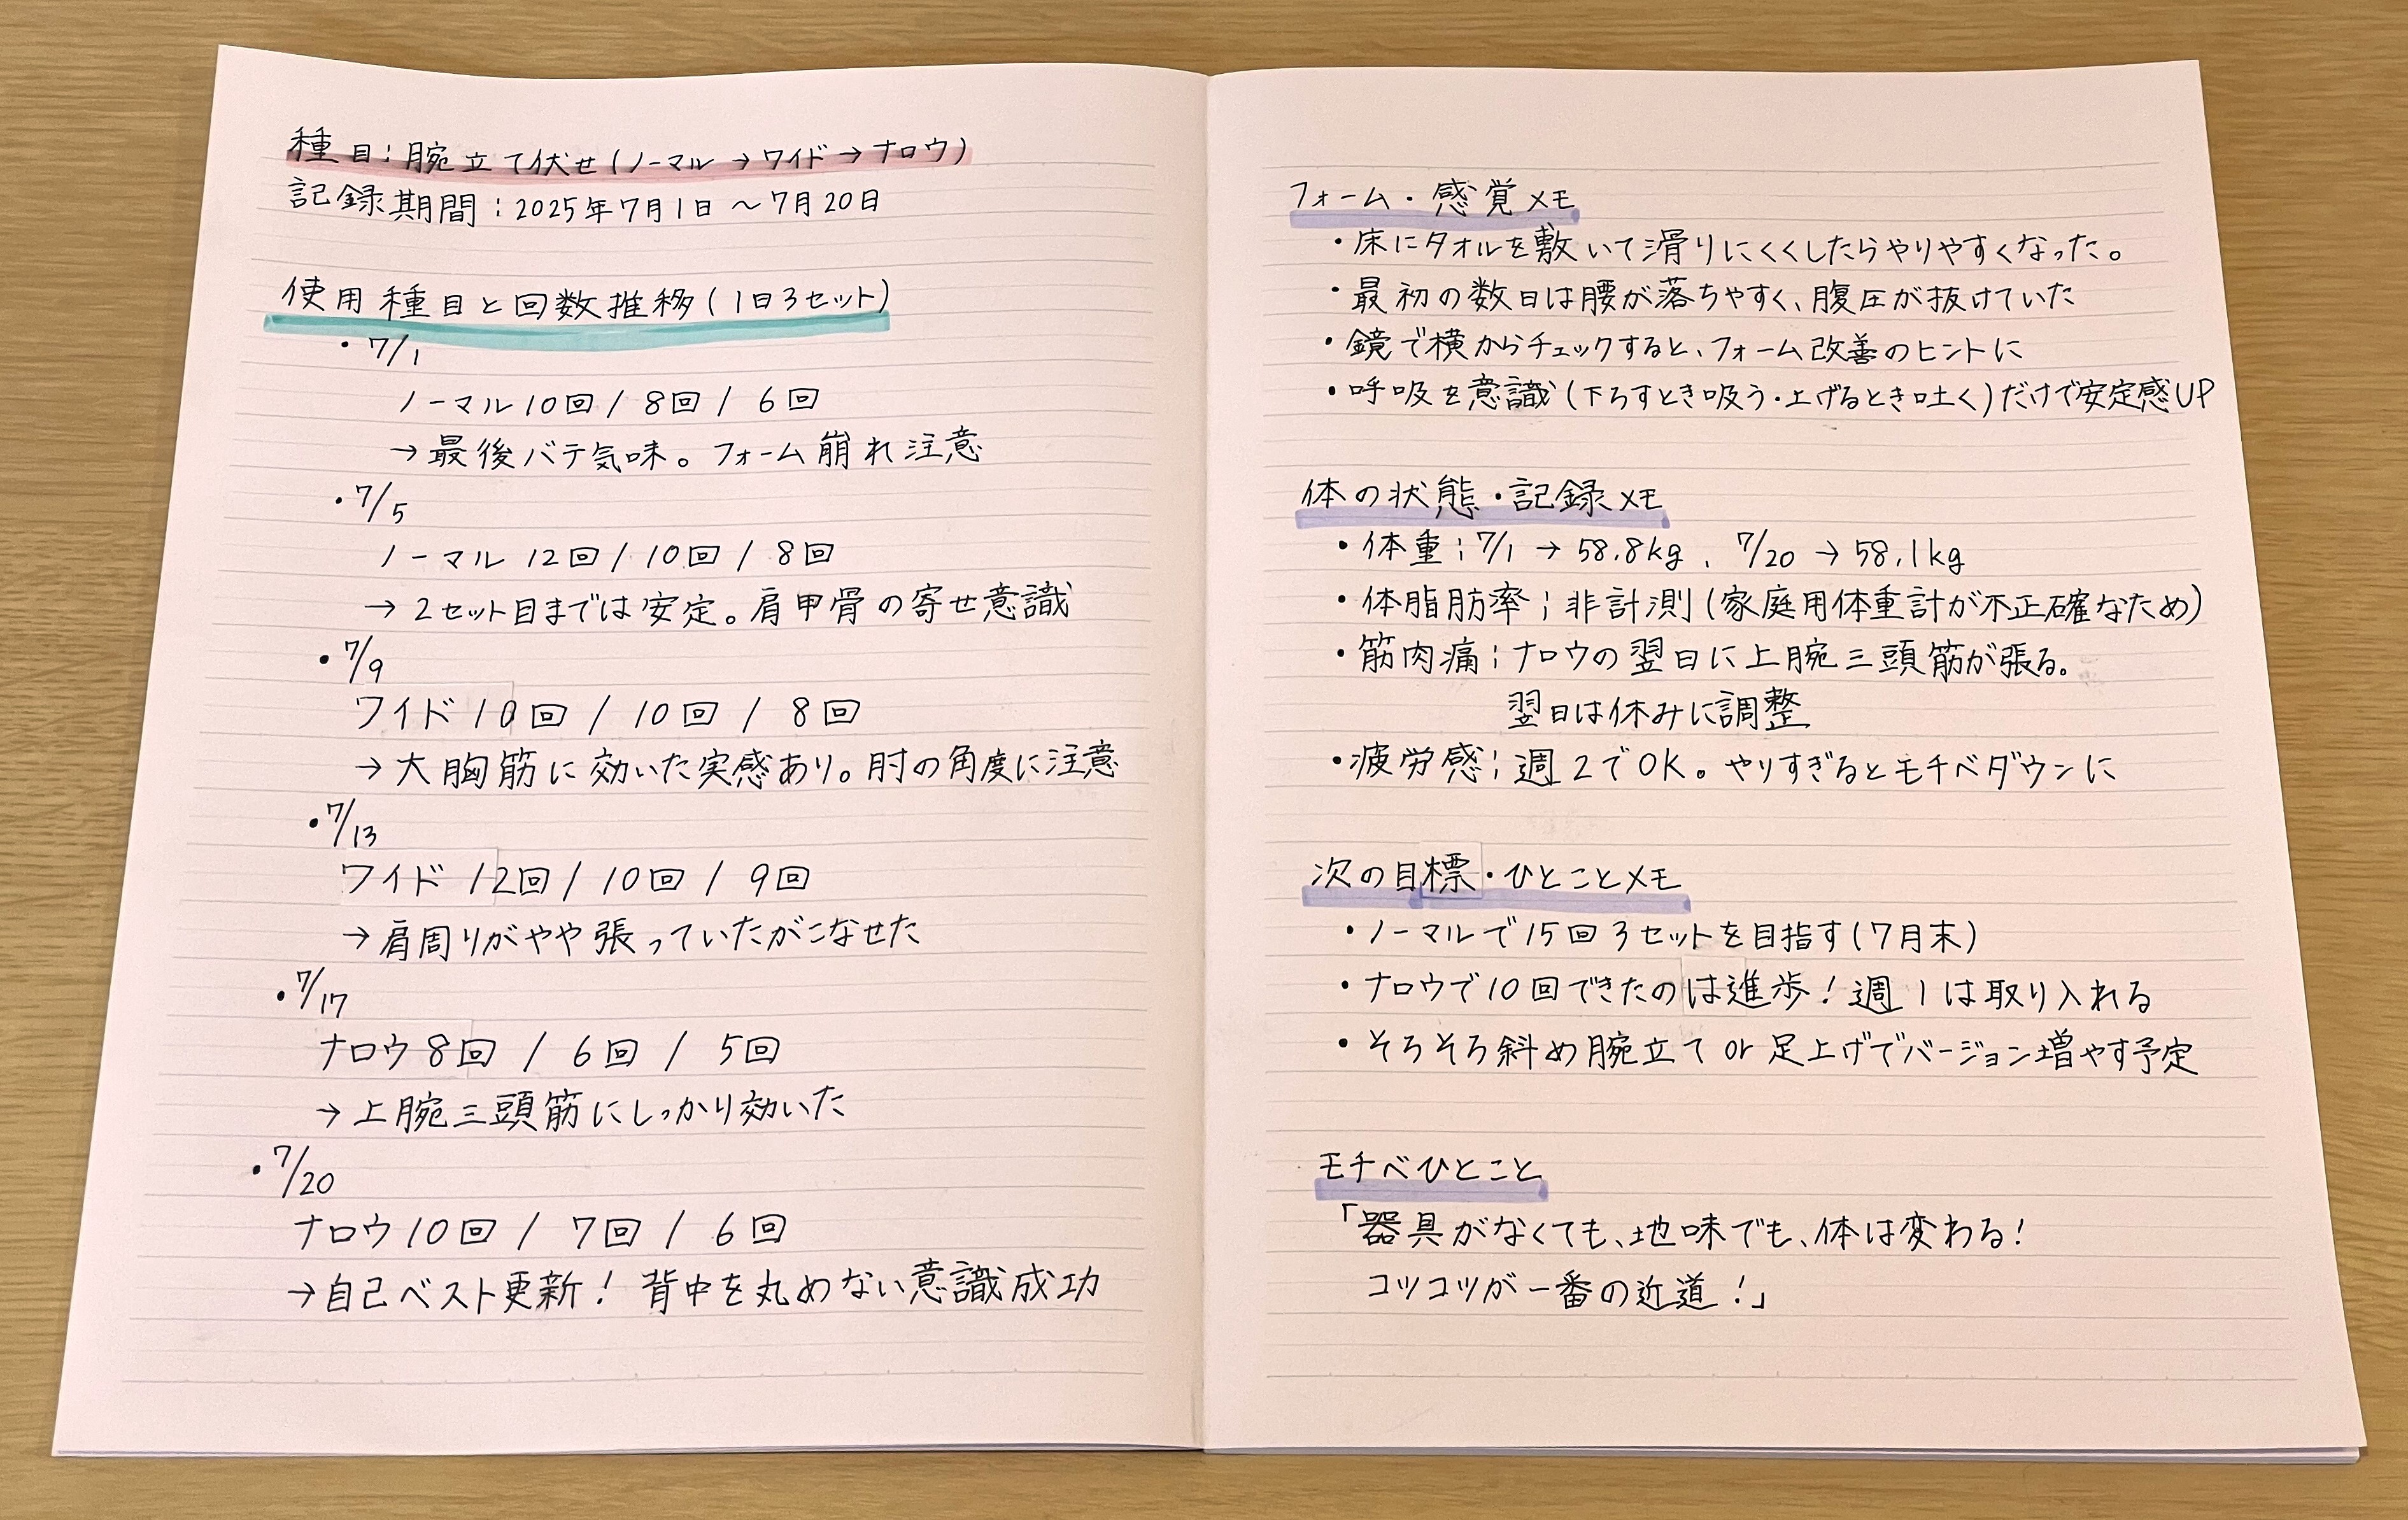 種目:腕立て伏せ(ノーマル→ワイド→ナロウ)
記録期間:2025年7月1日〜7月20日
使用種目と回数推移(1日3セット)
・7/1
ノーマル10回 / 8回 / 6回
→最後バテ気味。フォーム崩れ注意
・7/5
ノーマル 12回 / 10回 / 8回
→ 2セット目までは安定。肩甲骨の寄せ意識
・7/9
ワイド 10回 / 10回 / 8回
→大胸筋に効いた実感あり。肘の角度に注意
・7/13
ワイド 12回 / 10回 / 9回
→肩周りがやや張っていたがこなせた
・7/17
ナロウ 8回 / 6回 / 5回
→上腕三頭筋にしっかり効いた
・7/20
ナロウ10回 / 7回 / 6回
→自己ベスト更新! 背中を丸めない意識成功
フォーム・感覚メモ
・床にタオルを敷いて滑りにくくしたらやりやすくなった。
・最初の数日は腰が落ちやすく、腹圧が抜けていた
・鏡で横からチェックすると、フォーム改善のヒントに
・呼吸を意識(下ろすとき吸う・上げるとき吐く)だけで安定感UP
体の状態・記録メモ
・体重:7/1 → 58.8kg、7/20 → 58.1kg
・体脂肪率:非計測(家庭用体重計が不正確なため)
・筋肉痛:ナロウの翌日に上腕三頭筋が張る。
翌日は休みに調整
・疲労感:週2でOK。やりすぎるとモチベダウンに
次の目標・ひとことメモ
・ノーマルで15回3セットを目指す(7月末)
・ナロウで10回できたのは進歩!週1は取り入れる
・そろそろ斜め腕立て or 足上げでバージョン増やす予定
モチベひとこと
「器具がなくても、地味でも、体は変わる!
コツコツが一番の近道!」